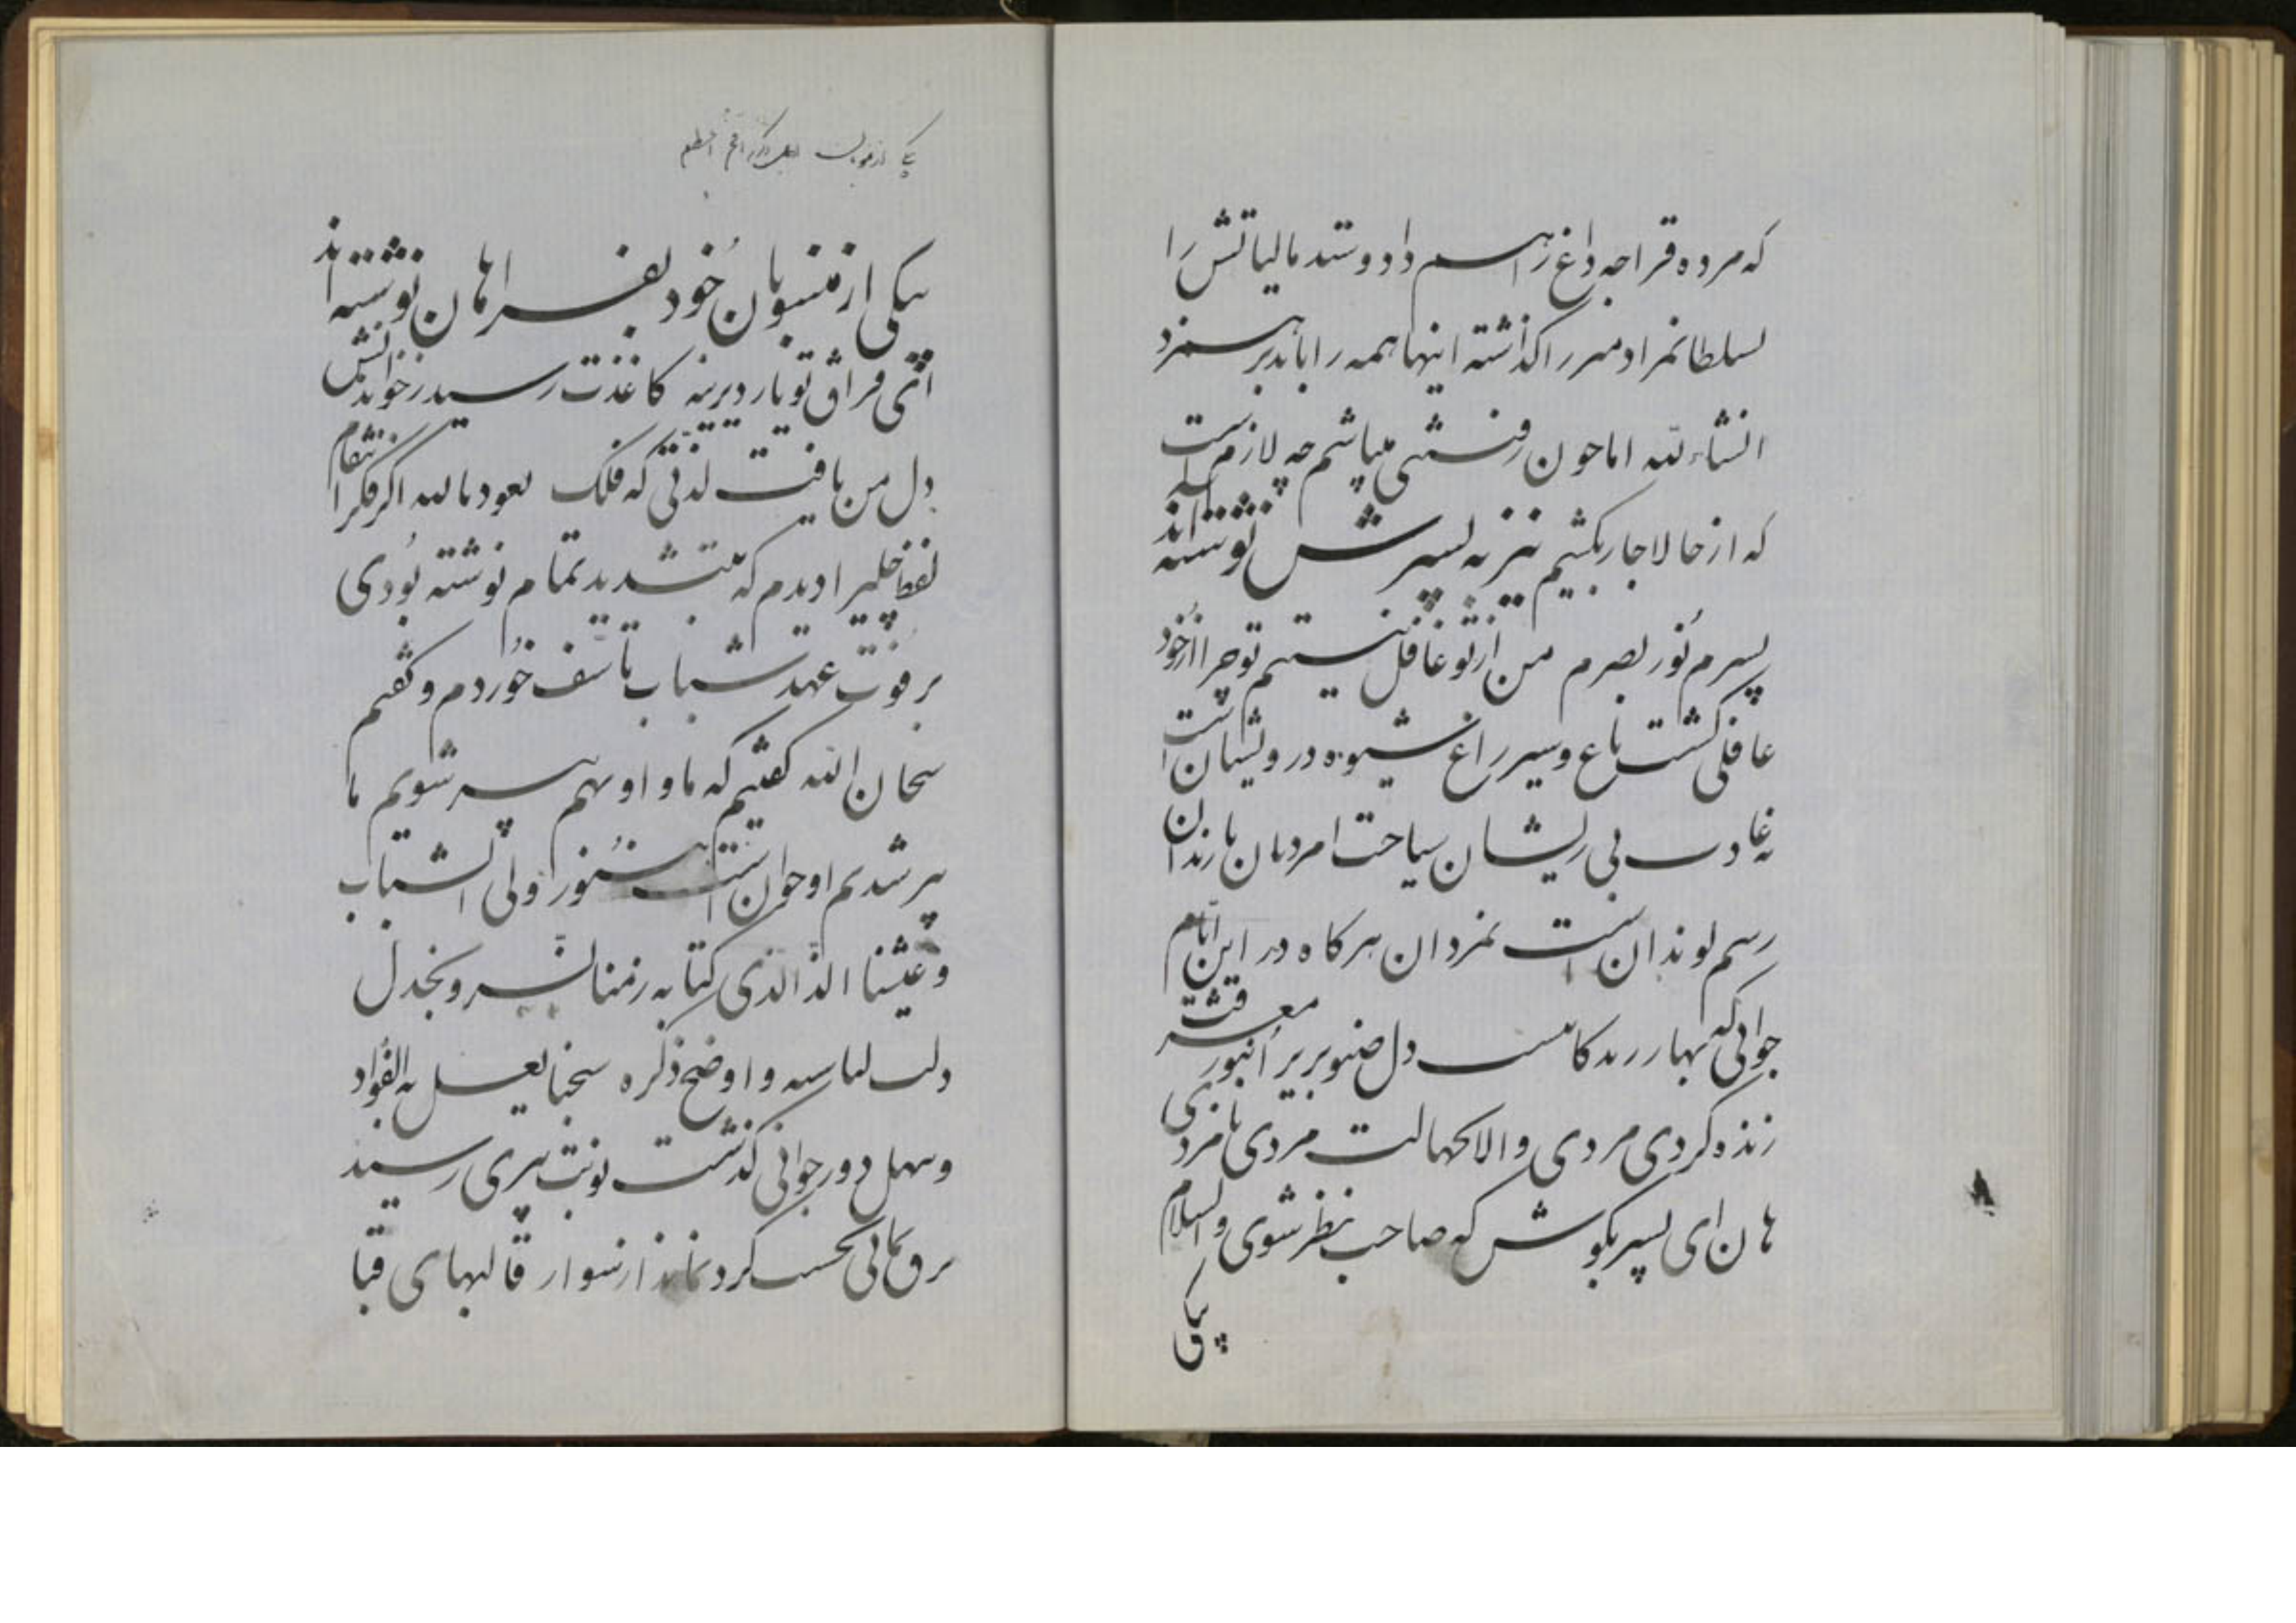 که مرده قراجه داغ را هم داد و ستد مالیاتش را
سلطانمراد میرزا گذاشته اینها همه را باید بر هم زد
انشاء الله اما چون رفتنی میباشم چه لازم است
که از حالا جار بکشیم نیز به پسرش نوشته اند
پسرم نور بصرم من از تو غافل نیستم تو چرا از خود
غافلی گشت باغ و سیر راغ شیوه درویشان است
نه عادت بی ریشان سیاحت امردان با رندان
رسم لوندان است نه مردان هر گاه در این ایام
جوانی که بهار زندگانیست دل صنوبریرا بنور معرفت
زنده کردی مردی والا بجهالت مردی نامردی
هان ای پسر بکوش که صاحب نظر شوی والسلام
یکی
یکی از
یکی از منسوبان خود بفراهان نوشته اند
ای فراق تو یار دیرینه کاغذت رسید از خواندنش
دل من یافت لذتی که فلک نعوذ بالله اگر فکر انتقام
لفظ پیرا دیدم که بتشدید تمام نوشته بودی
بر فوت عهد شباب تاسف خوردم و گفتم
سبحان الله گفتیم که ما و او بهم پیر شویم ما
پیر شدیم او جوان است هنوز اولی الشباب
و عیشنا الذ الذی کنا به زمنا نسر و نجذل
ولت لباسه و اوضح ذکره شجبا یعل به الفواد
وینهل دور جوانی گذشت نوبت پیری رسید
برق یمانی بجست گرد نماند از سوار قالبهای قبا